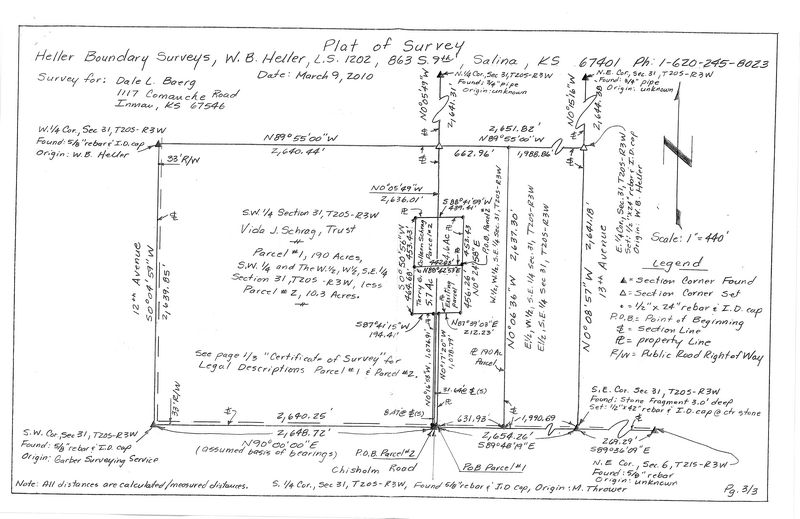 Plat of Survey
Heller Boundary Surveys, W. B. Heller, L.S. 1202, 863 S. 9th, Salina, KS 67401 Ph: 1-620-245-8023
Survey for: Dale L. Baerg
1117 Comanche Road
Inman, KS 67546
Date: March 9, 2010
N. 1/4 Cor, Sec 31, T20S-R3W
Found: 3/4" pipe
Origin: unknown
N.E. Cor, Sec. 31, T20S-R3W
Found: 3/4" pipe
Origin: unknown
N0°05'49"W
2,641.31'
N0°15'16"W
2,644.38'
W. 1/4 Cor, Sec 31, T20S-R3W
Found: 5/8" rebar & I.D. cap
Origin: W.B. Heller
N89°55'00"W
2,640.44'
2,651.82'
N89°55'00"W
662.96'
1,988.86'
33' R/W
E. 1/4 Cor, Sec 31, T20S-R3W
Set: 1/2" x 24" rebar & I.D. cap
Origin: W. B. Heller
Scale: 1" = 440'
N0°05'49"W
2,636.01'
S88°41'59"W
439.41'
S.W. 1/4 Section 31, T20S-R3W
Viola J. Schrag, Trust
Parcel #1, 190 Acres,
S.W. 1/4 and The W. 1/2, W 1/2, S.E. 1/4
Section 31, T20S-R3W, less
Parcel #2, 10.3 Acres.
12th Avenue
S0°04'59"W
2,639.85'
S0°50'56"W
453.43'
464.68'
Parcel #2
4.6 Ac
453.43
P.O.B. Parcel 2
N0°24'58"E
456.26'
5.7 Ac
Existing
parcel
S87°41'15"W
194.41'
N87°59'03"E
212.23'
W 1/2, W 1/2, S.E. 1/4 Sec 31, T20S-R3W
N0°06'36"W 2,637.30'
E 1/2, W 1/2, S.E. 1/4 Sec 31, T20S-R3W
E 1/2, S.E. 1/4 Sec 31, T20S-R3W
N0°08'57"W 2,641.18'
13th Avenue
Legend
▲ = Section Corner Found
△ = Section Corner Set
• = 1/2" x 24" rebar & I.D. cap
P.O.B. = Point of Beginning
= Section Line
= property Line
R/W = Public Road Right of Way
See page 1/3 "Certificate of Survey" for
Legal Descriptions Parcel #1 & Parcel #2.
N0°17'20"W
1,078.79'
190 Ac
Parcel
33' R/W
2,640.25'
2,648.72'
N90°00'00"E
(assumed basis of bearings)
631.98'
1,990.69
2,654.26'
S89°48'19"E
269.29'
S89°36'09"E
S.E. Cor, Sec 31, T20S-R3W
Found: Stone Fragment 3.0' deep
Set: 1/2" x 42" rebar & I.D. cap @ ctr stone
S.W. Cor, Sec 31, T20S-R3W
Found: 5/8" rebar & I.D. cap
Origin: Garber Surveying Service
P.O.B. Parcel #2
Chisholm Road
P.O.B Parcel #1
N.E Cor., Sec 6, T21S-R3W
Found: 5/8" rebar
Origin: unknown
Note: All distances are calculated/measured distances.
S. 1/4 Cor., Sec 31, T20S-R3W, Found 5/8" rebar & I.D cap, Origin: M. Thrower
Pg. 3/3